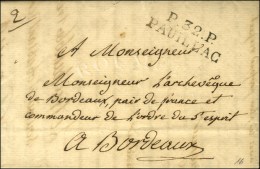 2
P.32.P.
PAUILLAC
A Monseigneur
Monseigneur L'archevêque
de Bordeaux, pair de france et
commandeur de L'ordre du St esprit
A Bordeaux